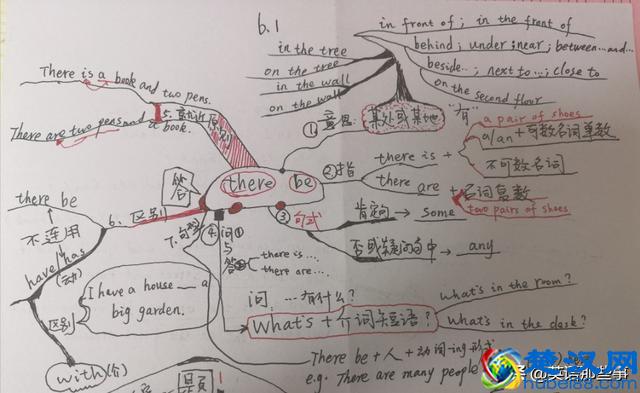 6.1
in front of; in the front of
behind; under; near; between...and...
beside...; next to...; close to
on the second floor
in the tree
on the tree
in the wall
on the wall
①意思:
某处或某地
"有"
There is a book and two pens.
There are two pens and a book.
5. 就近原则
there be
②指
there is +
a pair of shoes
a/an + 可数名词单数
不可数名词
there are + 名词复数
two pairs of shoes
③句式
肯定句 → some
否或疑问句中 → any
④问
与
答
there is...
there are...
问: ...有什么?
What's + 介词短语?
what's in the room?
what's in the desk?
There be + 人 + 动词-ing 形式
e.g. There are many people
6. 区别
there be
不连用
have/has
(动)
区别
I have a house ___ a
big garden.
with(介)
楚汉网
hubei88.com
@英语那些事